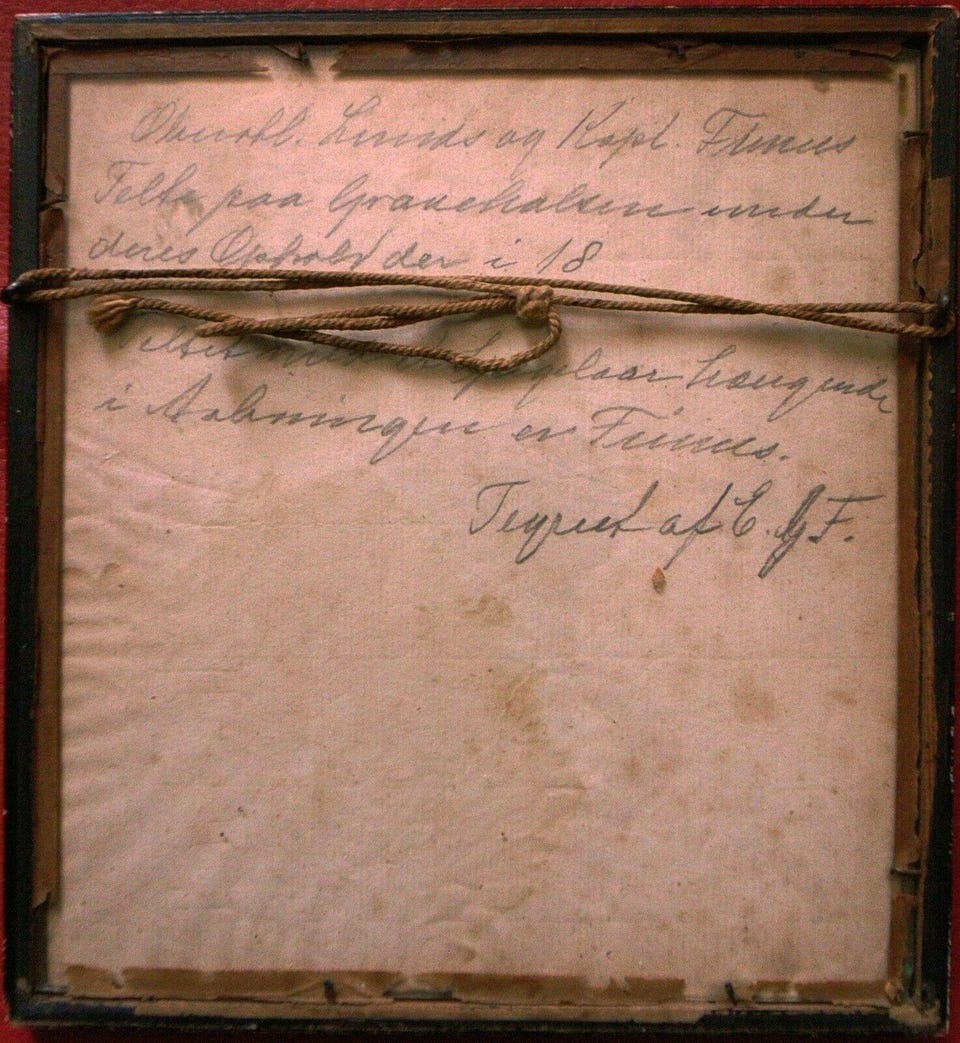 Oberstl. Lunds og Kapt. Finnes
Telte paa Gravehalsen under
deres Ophold der i 18
Teltet med hængende
i Aabningen er Finnes.
Tegnet af E. G. F.